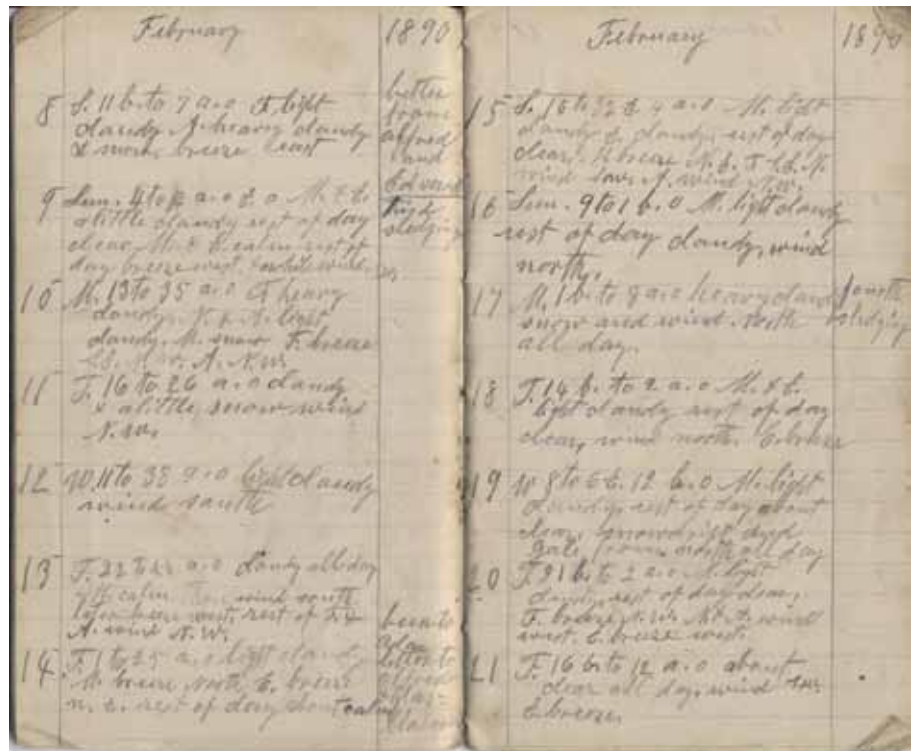 February 1890
8 S. 11 b. to 7 a.o F. light
claudy A. heavy claudy
& snow, breeze east
better
from
alfred
and
Edward
9 Sun. 4 to a.o & o M. & E.
a little claudy rest of day
clear, M. & E. calm rest of
day breeze west
sledging
10 M. 13 to 35 a.o F. heavy
claudy. A. light
claudy. M. snow F. breeze
A. N.W.
11 T. 16 to 26 a.o claudy
& a little, snow wind
N.W.
12 W. 11 to 38 a.o light claudy
wind south
13 T. a.o claudy all day
calm wind south
breeze west, rest of
A. wind N.W.
14 F. 1 to 25 a.o light claudy
M. breeze north, E. breeze
n. e. rest of day about calm
letter to
alfred
February 1890
15 S. 16 to 32 & 4 a.o M. light
claudy & claudy, rest of day
clear. breeze N.E. F. & E. N.
wind A. wind N.W.
16 Sun. 9 to 1 b.o M. light claudy
rest of day claudy, wind
north.
17 M. 1 b. to 8 a.o heavy claudy
snow and wind north
all day.
fourth
sledging
18 T. 14 b. to 2 a.o M. & E.
light claudy rest of day
clear, wind north. E. breeze
19 W. 8 to 6 E. 12 b.o M. light
claudy, rest of day about
clear, snowdrift and
gale from north all day
20 T. 31 b. to 2 a.o M. light
claudy, rest of day clear,
F. breeze N.W. M. & A. wind
west. E. breeze west.
21 F. 16 b. to 12 a.o about
clear all day, wind
E. breeze.